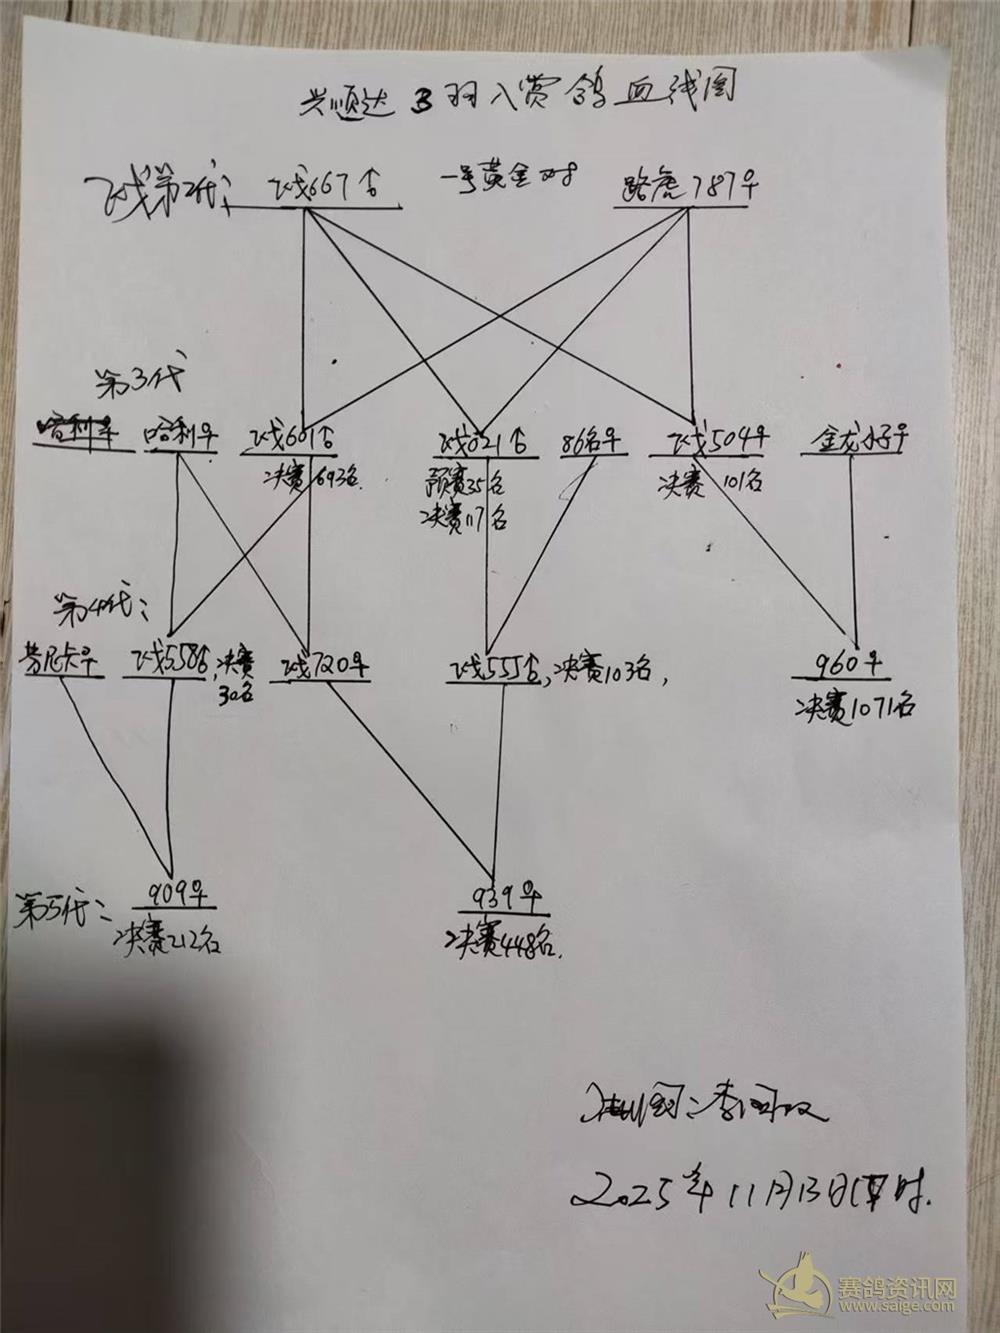 兴顺达3羽入赏鸽血线图
飞戈第2代: 飞戈667♂ 一号黄金对 路虎787♀
第3代
哈利♀ 哈利♀ 飞戈601♂ 飞戈621♂ 86名♀ 飞戈504♀ 金龙好子♀
决赛693名 预赛35名 决赛101名
决赛117名
第4代:
劳尼卡♀ 飞戈558♂,决赛30名 飞戈720♀ 飞戈555♂,决赛103名, 960♀
决赛1071名
第5代: 909♀ 939♀
决赛212名 决赛448名.
2025年11月13日
赛鸽资讯网
www.saige.com